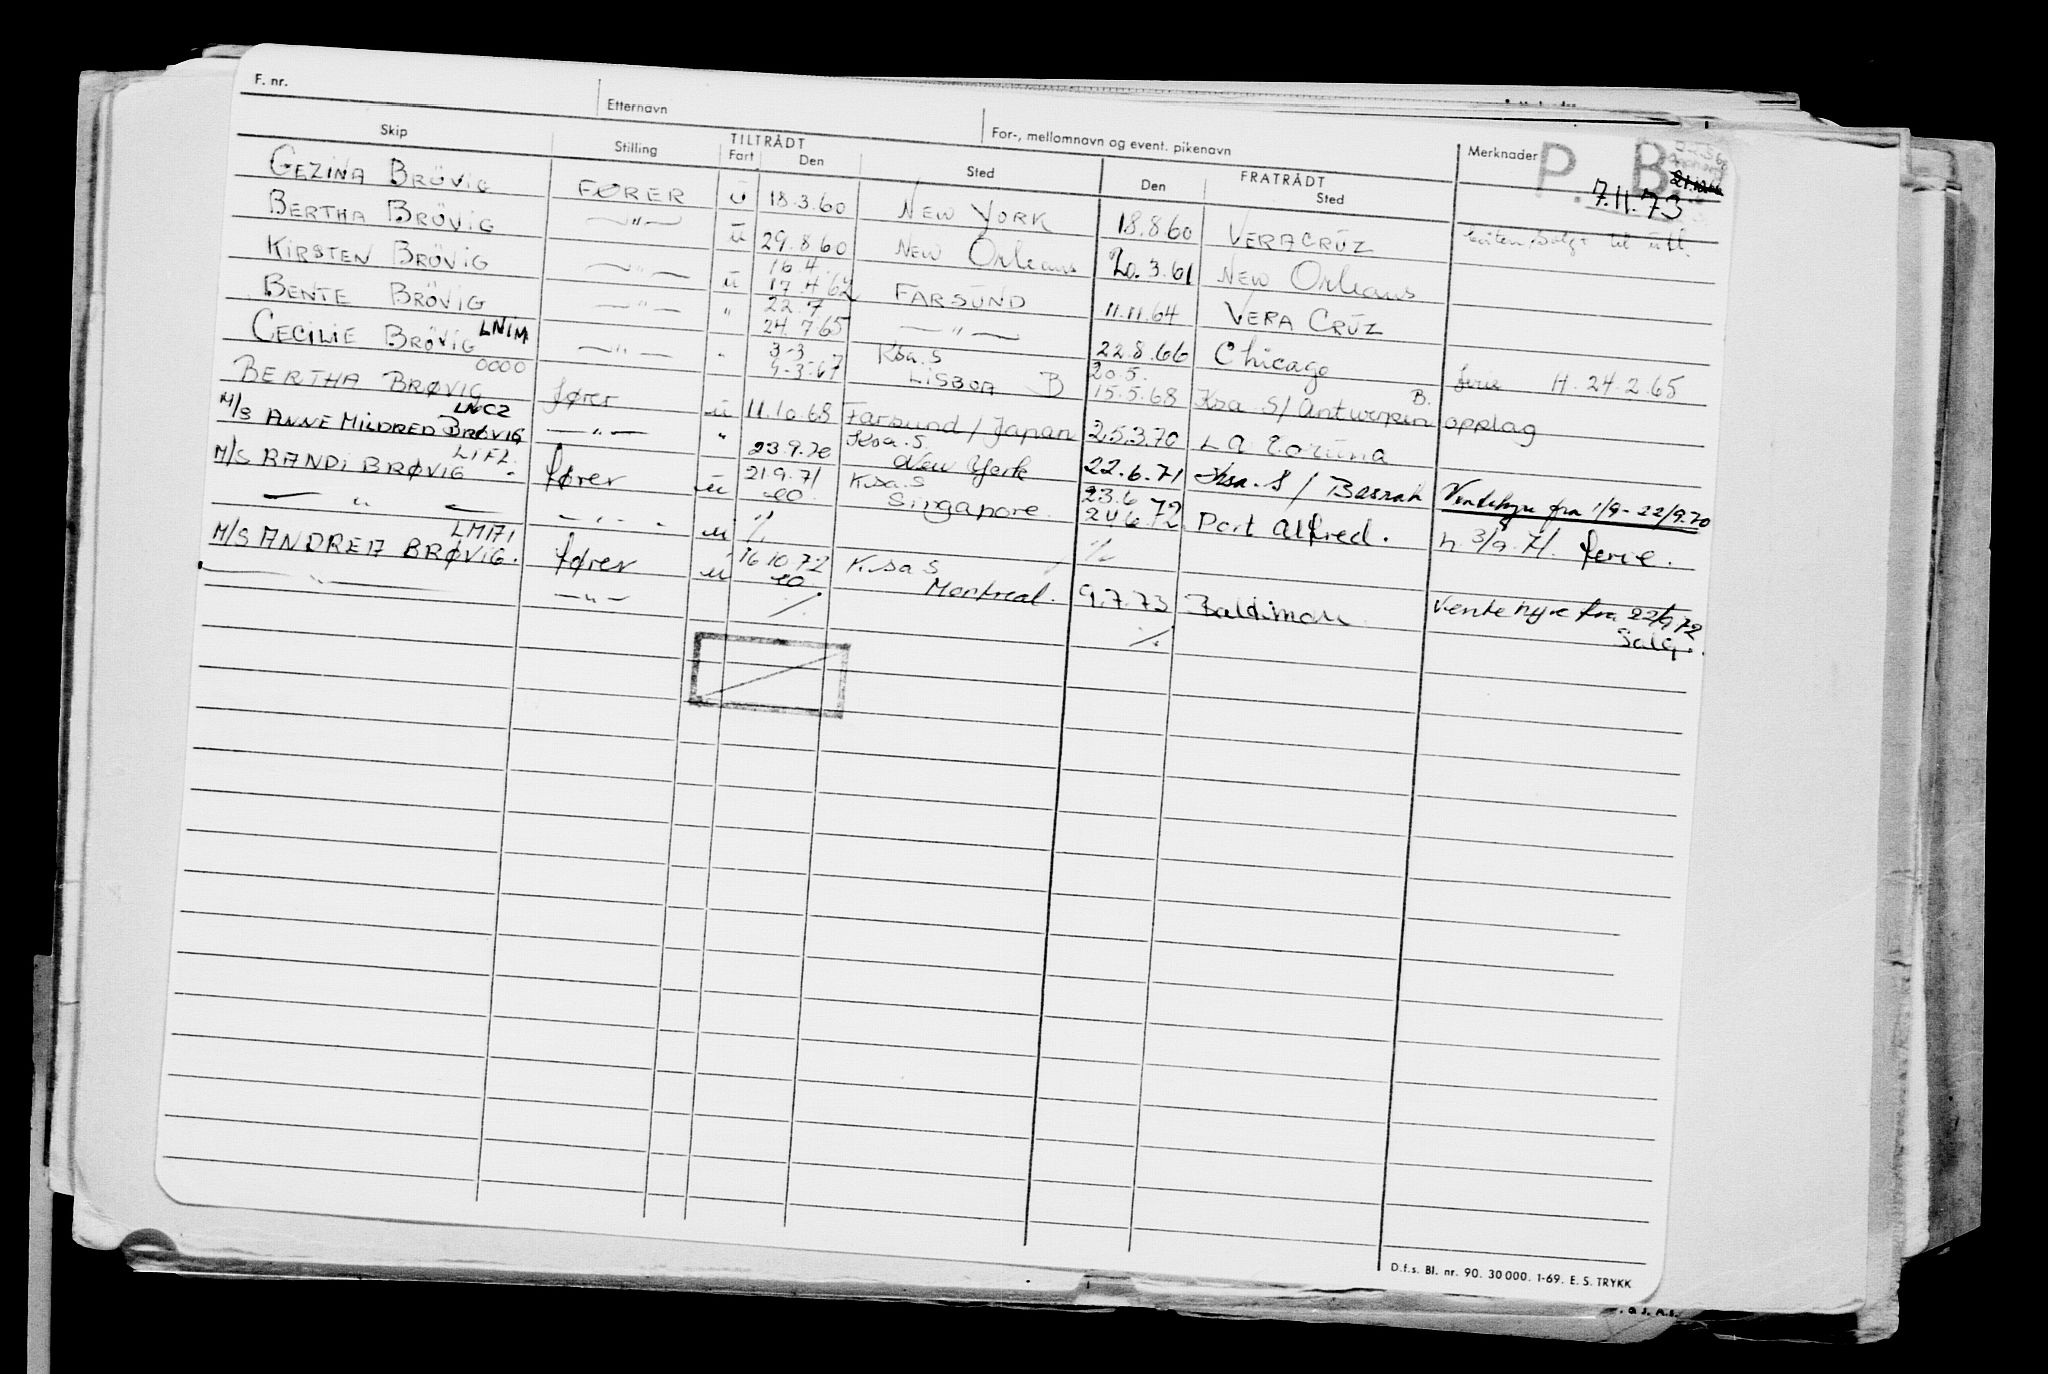 F. nr.
Etternavn
For-, mellomnavn og event. pikenavn
Merknader
P. B.
7.11.73
Skip Stilling TILTRÅDT Fart Den Sted FRATRÅDT Den Sted
GEZINA BRÖVIG FØRER u 18.3.60 NEW YORK 18.8.60 VERACRUZ
BERTHA BRÖVIG —"— u 29.8.60 NEW Orleans 20.3.61 NEW Orleans
KIRSTEN BRÖVIG —"— u 16.4. 17.4.62 FARSUND 11.11.64 VERA CRUZ
BENTE BRÖVIG —"— " 22.7 24.7.65 —"— 22.8.66 Chicago ferie H. 24.2.65
CECILIE BRÖVIG LNIM —"— " 3-3 9-3-67 Ksa. S LISBOA B 20.5. 15.5.68 Ksa S/ Antwerpen B. opplag
BERTHA BRØVIG OOOO fører u 11.10.68 Farsund / Japan 25.3.70 La Coruna
M/S ANNE MILDRED BRØVIG LNCZ —"— " 23.9.70 Ksa. S. New York 22.6.71 Ksa. S / Basrah Ventehyre fra 1/9-22/9.70
M/S RANDI BRØVIG LIFL fører u 21.9.71 Ksa. S Singapore. 23.6 24.6.72 Port Alfred. h. 3/9.71. ferie.
— " — — " — u % %
M/S ANDREA BRØVIG. LMAI fører u 16.10.72 Ksa S Montreal. 9.7.73 Baltimore Ventehyre fra 22/9 72
Salg.
— " — — " — % %
D.f.s. Bl. nr. 90. 30 000. 1-69. E. S. TRYKK